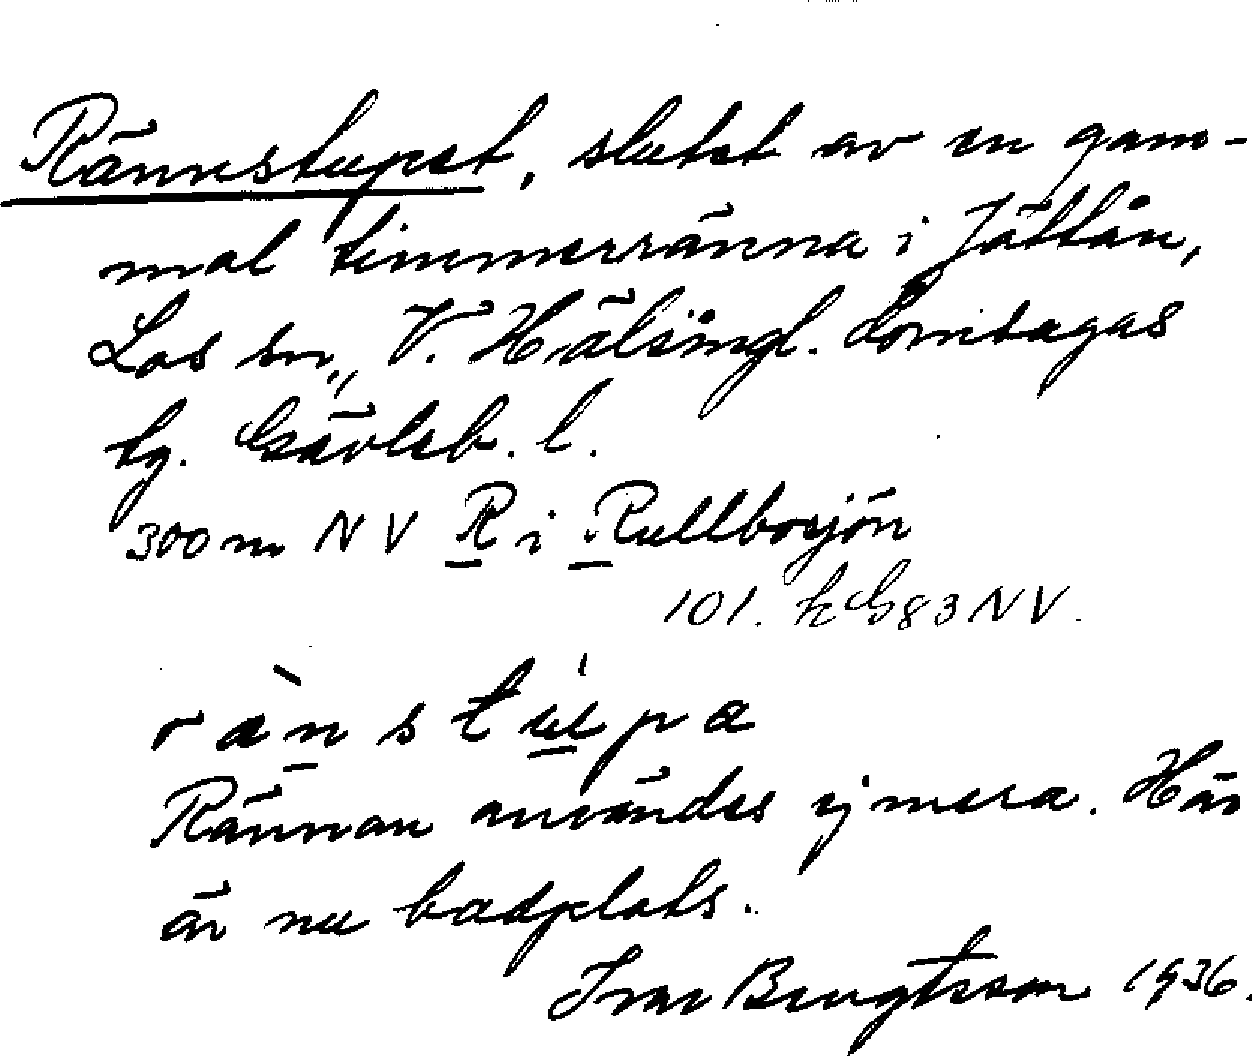 Rännstupet, slutet av en gam-
mal timmerränna i Jättån,
Los sn, V. Hälsingl. domsagas
tg. Gävleb. l.
300 m NV R i Rullbosjön
101. h G 83 NV.
rànstu̱pa
Rännan användes ej mera. Här
är nu badplats.
Ivar Bengtsson 1936.